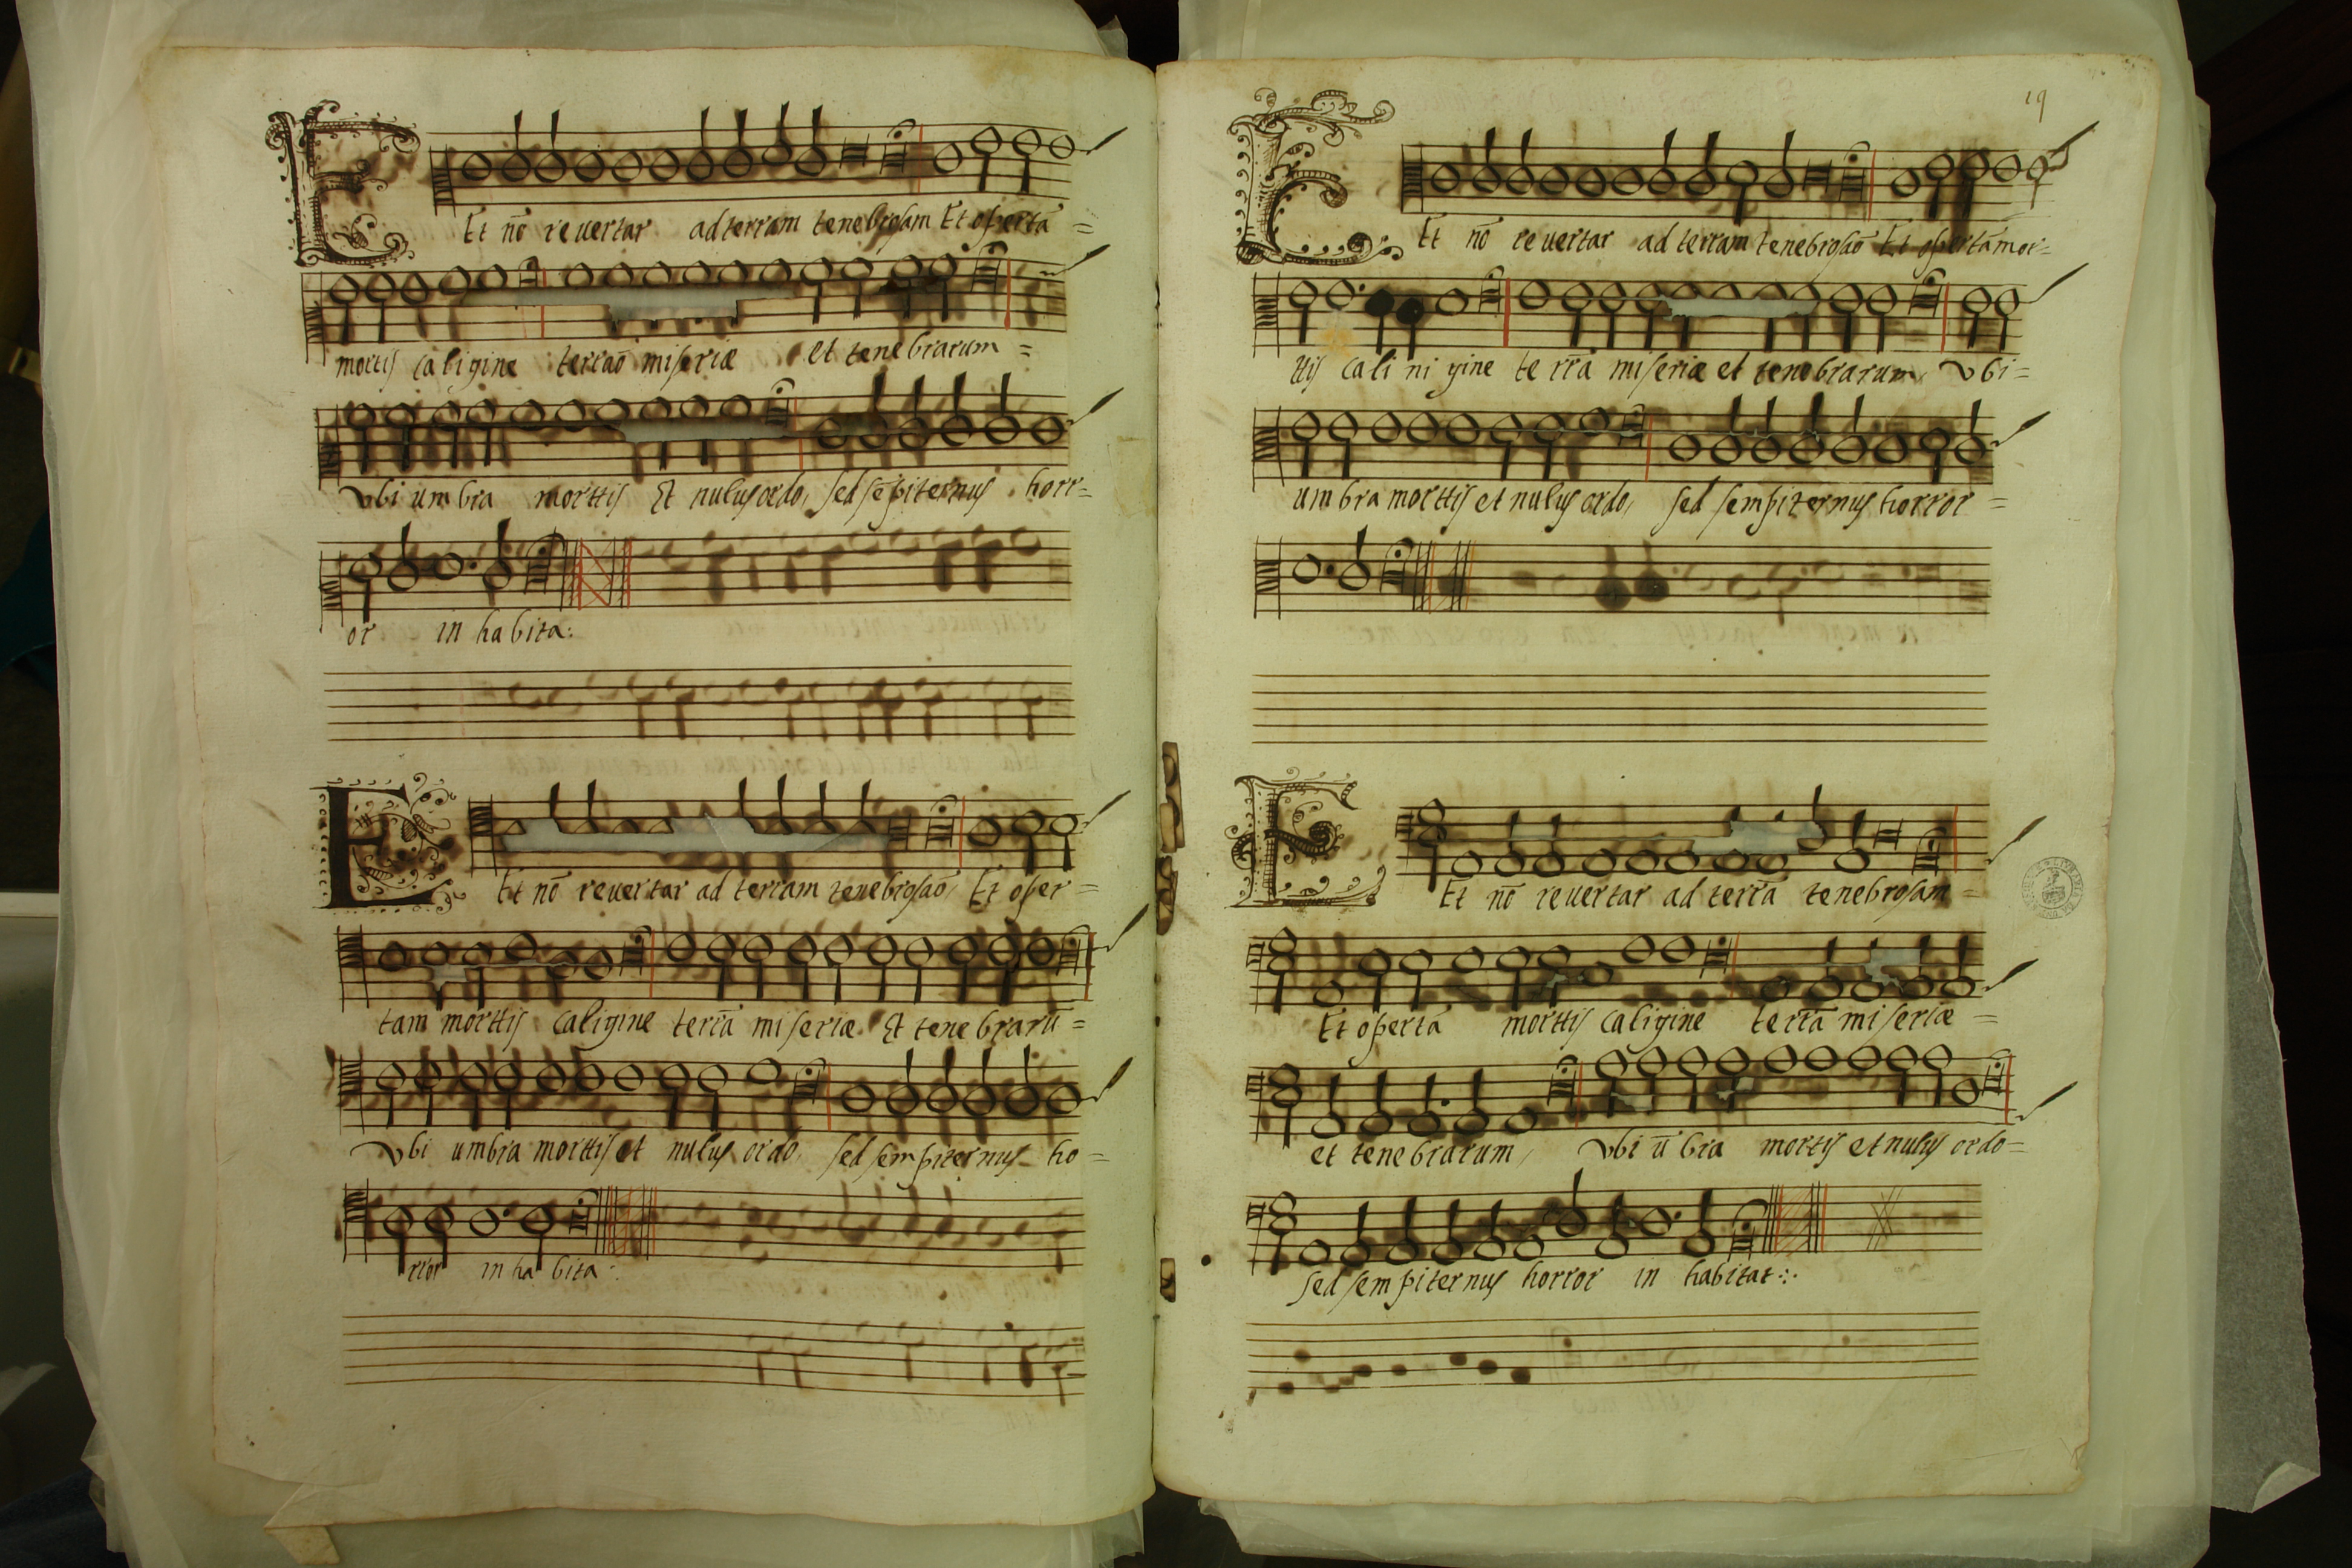 Et nō revertar ad terram tenebrosam Et opertā =
mortis caligine terraō miseriæ et tenebrarum =
Vbi umbra morttis Et nulus ordo, sed sēpiternus horr=
or in habita:
Et nō revertar ad terram tenebrosaō Et oper =
tam morttis caligine terrā miseriæ Et tenebrarū =
Vbi umbra morttis et nulus ordo, sed sempiternus ho =
rror in habita:
19
Et nō revertar ad terram tenebrosaō Et opertāmor=
ttis cali ni gine terrā miseriæ et tenebrarum, Vbi=
umbra morttis et nulus ordo, sed sempiternus horror =
Et nō revertar ad terrā tenebrosam =
Et opertā morttis caligine terrā miseriæ =
et tenebrarum, Vbi ū bra mortis et nulus ordo=
sed sempiternus horror in habitat: